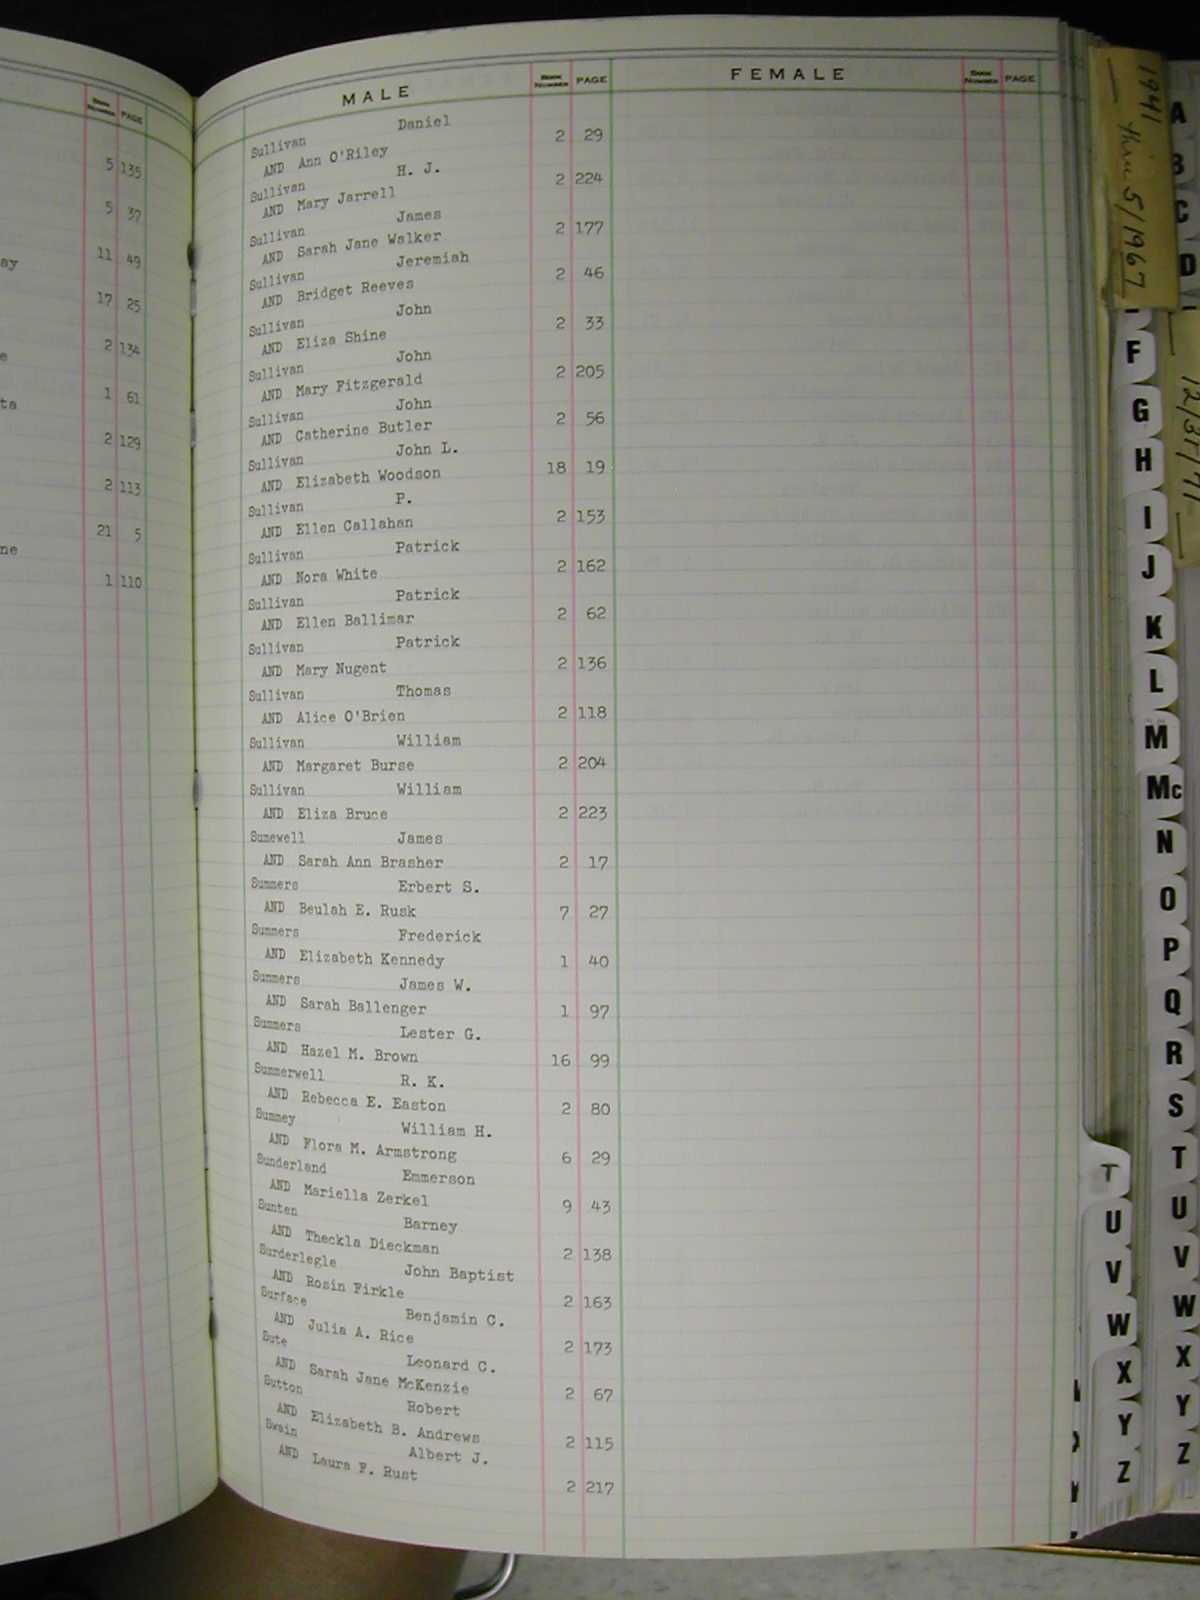 BOOK NUMBER PAGE
5 135
5 37
ay 11 49
17 25
e 2 134
ta 1 61
2 129
2 113
ne 21 5
1 110
MALE BOOK NUMBER PAGE FEMALE BOOK NUMBER PAGE
Sullivan Daniel
AND Ann O'Riley 2 29
Sullivan H. J.
AND Mary Jarrell 2 224
Sullivan James
AND Sarah Jane Walker 2 177
Sullivan Jeremiah
AND Bridget Reeves 2 46
Sullivan John
AND Eliza Shine 2 33
Sullivan John
AND Mary Fitzgerald 2 205
Sullivan John
AND Catherine Butler 2 56
Sullivan John L.
AND Elizabeth Woodson 18 19
Sullivan P.
AND Ellen Callahan 2 153
Sullivan Patrick
AND Nora White 2 162
Sullivan Patrick
AND Ellen Ballimar 2 62
Sullivan Patrick
AND Mary Nugent 2 136
Sullivan Thomas
AND Alice O'Brien 2 118
Sullivan William
AND Margaret Burse 2 204
Sullivan William
AND Eliza Bruce 2 223
Sumewell James
AND Sarah Ann Brasher 2 17
Summers Erbert S.
AND Beulah E. Rusk 7 27
Summers Frederick
AND Elizabeth Kennedy 1 40
Summers James W.
AND Sarah Ballenger 1 97
Summers Lester G.
AND Hazel M. Brown 16 99
Summerwell R. K.
AND Rebecca E. Easton 2 80
Summey William H.
AND Flora M. Armstrong 6 29
Sunderland Emmerson
AND Mariella Zerkel 9 43
Sunten Barney
AND Theckla Dieckman 2 138
Surderlegle John Baptist
AND Rosin Firkle 2 163
Surface Benjamin C.
AND Julia A. Rice 2 173
Sute Leonard C.
AND Sarah Jane McKenzie 2 67
Sutton Robert
AND Elizabeth B. Andrews 2 115
Swain Albert J.
AND Laura F. Rust 2 217
1941
thru 5/1967
12/31/71
F
G
H
I
J
K
L
M
Mc
N
O
P
Q
R
S
T
U
V
W
X
Y
Z
T
U
V
W
X
Y
Z
A
B
C
D